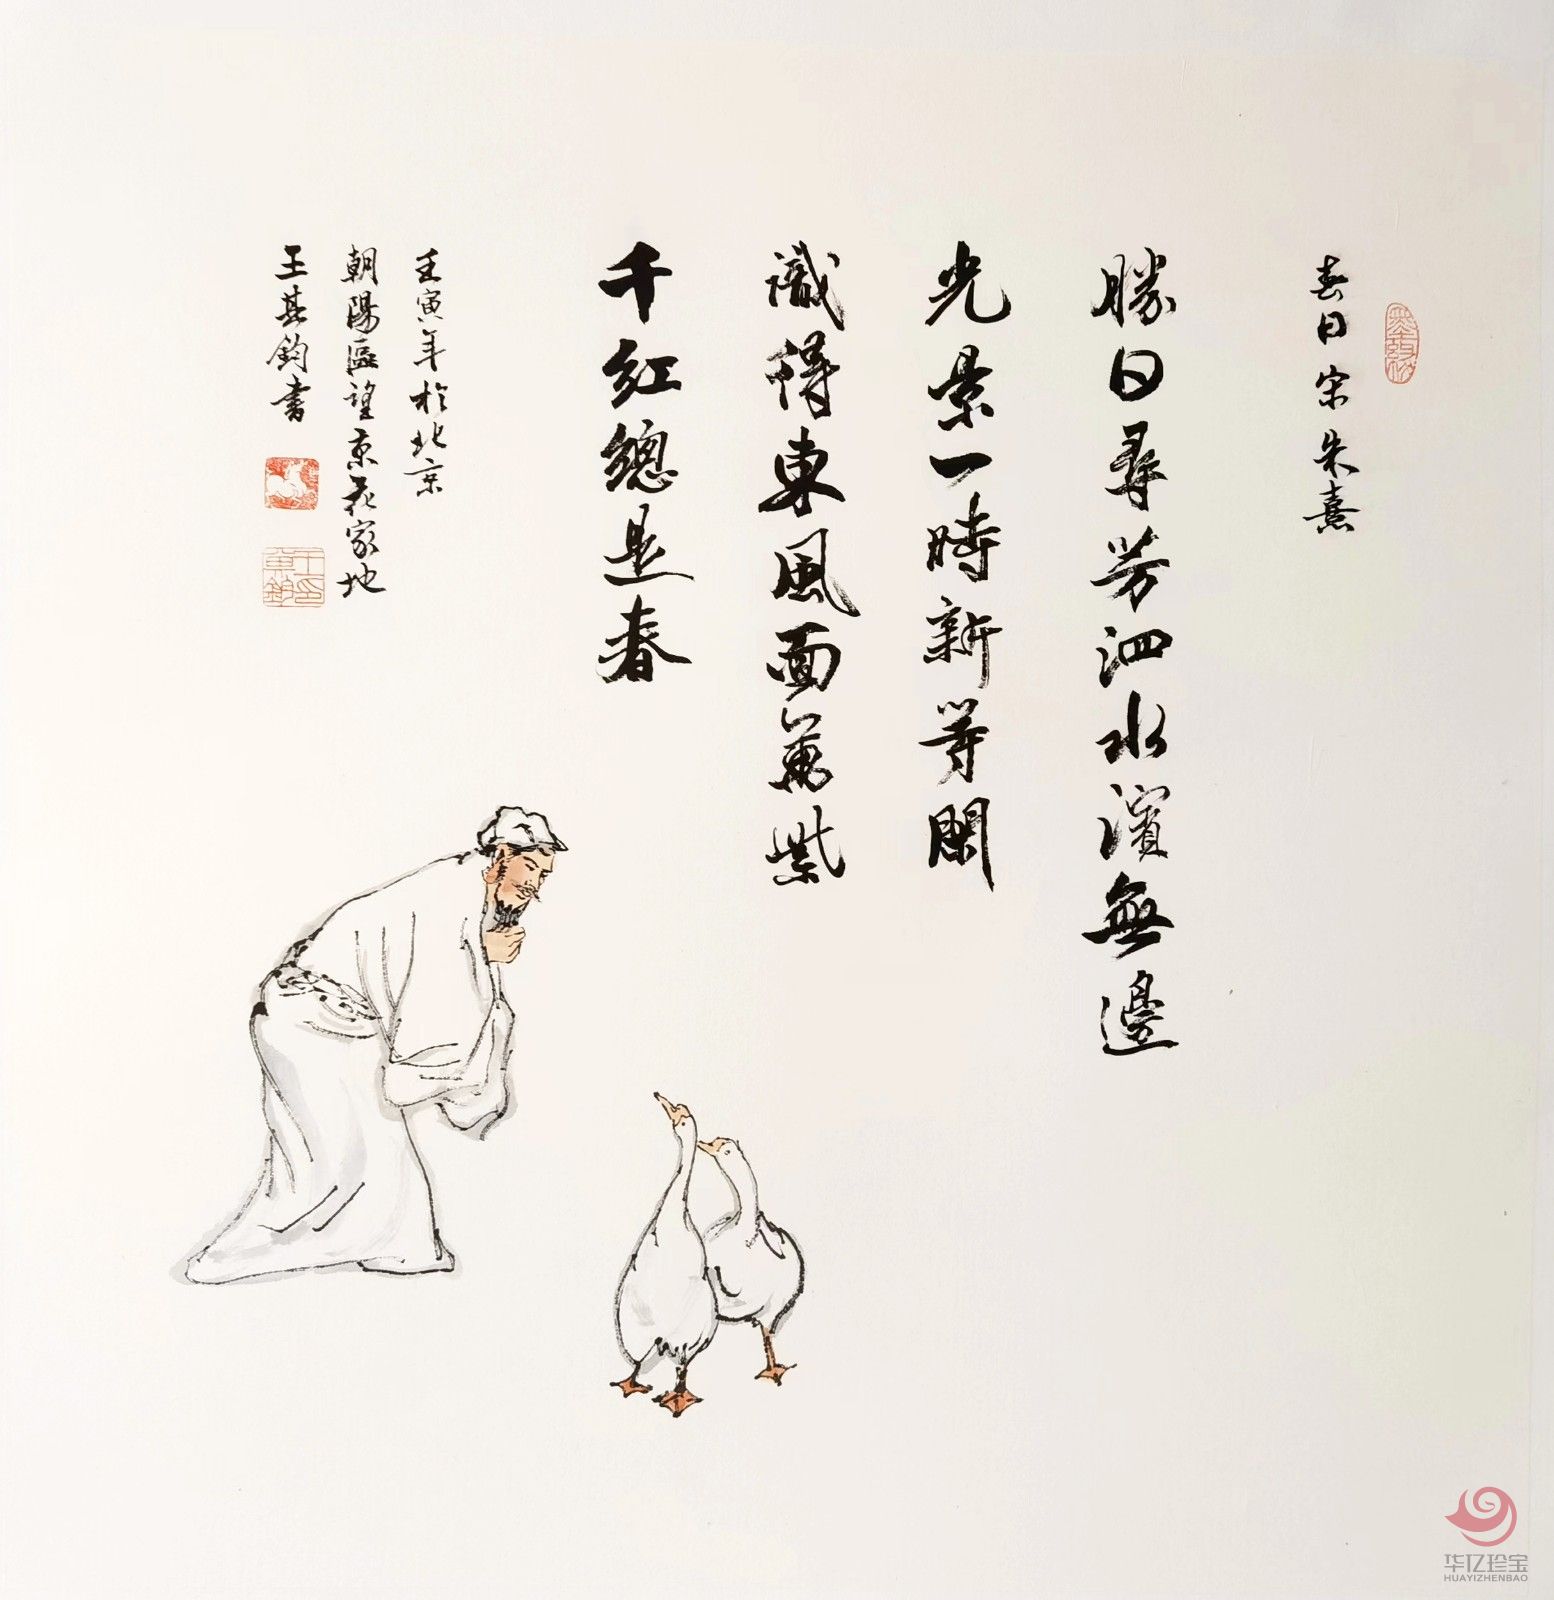 春日 宋 朱熹
勝日尋芳泗水濱無邊
光景一時新等閑
識得東風面萬紫
千紅總是春
壬寅年於北京
朝陽區望京花家地
王其鈞書
王印其鈞
华亿珍宝
HUAYIZHENBAO